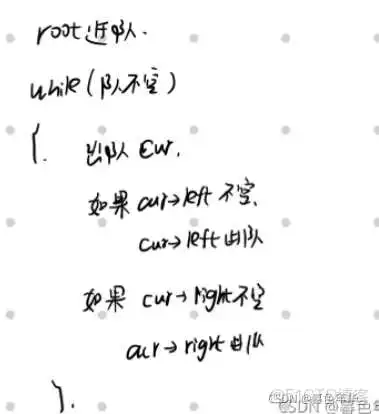 root进队.
while(队不空)
{ 出队 cur.
如果 cur→left 不空
cur→left 出队
如果 cur→right 不空
cur→right 出队
}.
CSDN @暮色